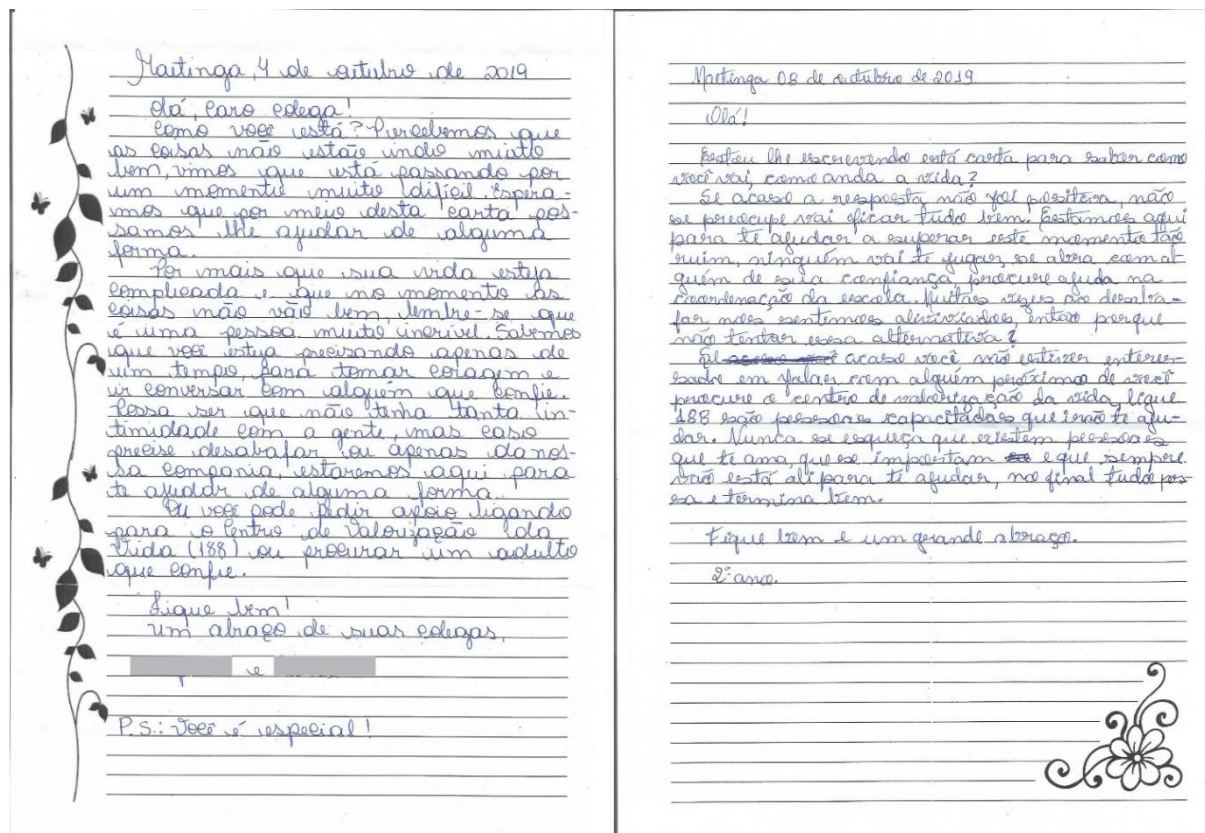 Maetinga, 4 de outubro de 2019
Olá, caro colega!
Como você está? Percebemos que
as coisas não estão indo muito
bem, vimos que está passando por
um momento muito difícil. Espera-
mos que por meio desta carta pos-
samos lhe ajudar de alguma
forma.
Por mais que sua vida esteja
complicada e que no momento as
coisas não vão bem, lembre-se que
é uma pessoa muito incrível. Sabemos
que você esteja precisando apenas de
um tempo, para tomar coragem e
ir conversar com alguém que confie.
Possa ser que não tenha tanta in-
timidade com a gente, mas caso
precise desabafar ou apenas da nos-
sa compania, estaremos aqui para
te ajudar de alguma forma.
Ou você pode pedir apoio ligando
para o Centro de Valorização da
Vida (188) ou procurar um adulto
que confie.
Fique bem!
Um abraço de suas colegas,
e
P.S.: Você é especial!
Maetinga 08 de outubro de 2019.
Olá!
Esteu lhe escrevendo está carta para saber como
você vai, como anda a vida?
Se acaso a resposta não foi positiva, não
se preocupe vai ficar tudo bem. Estamos aqui
para te ajudar a superar este momento tão
ruim, ninguém vai te jugar, se abra com al
guém de sua confiança, procure ajuda na
coordenação da escola. Muitas vezes ao desaba-
far nos sentimos aliviados, então porque
não tentar essa alternativa?
Se acaso você não estiver enteres-
sado em falar com alguém próximo de você
procure o centro de valorização da vida, ligue
188 são pessoas capacitadas que irão te aju-
dar. Nunca se esqueça que existem pessoas
que te ama, que se importam e que sempre
vão está ali para te ajudar, no final tudo pas-
sa e termina bem.
Fique bem e um grande abraço.
2º ano.